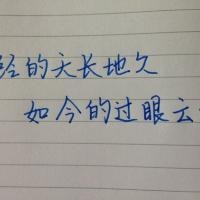 经的天长地久
如今的过眼云